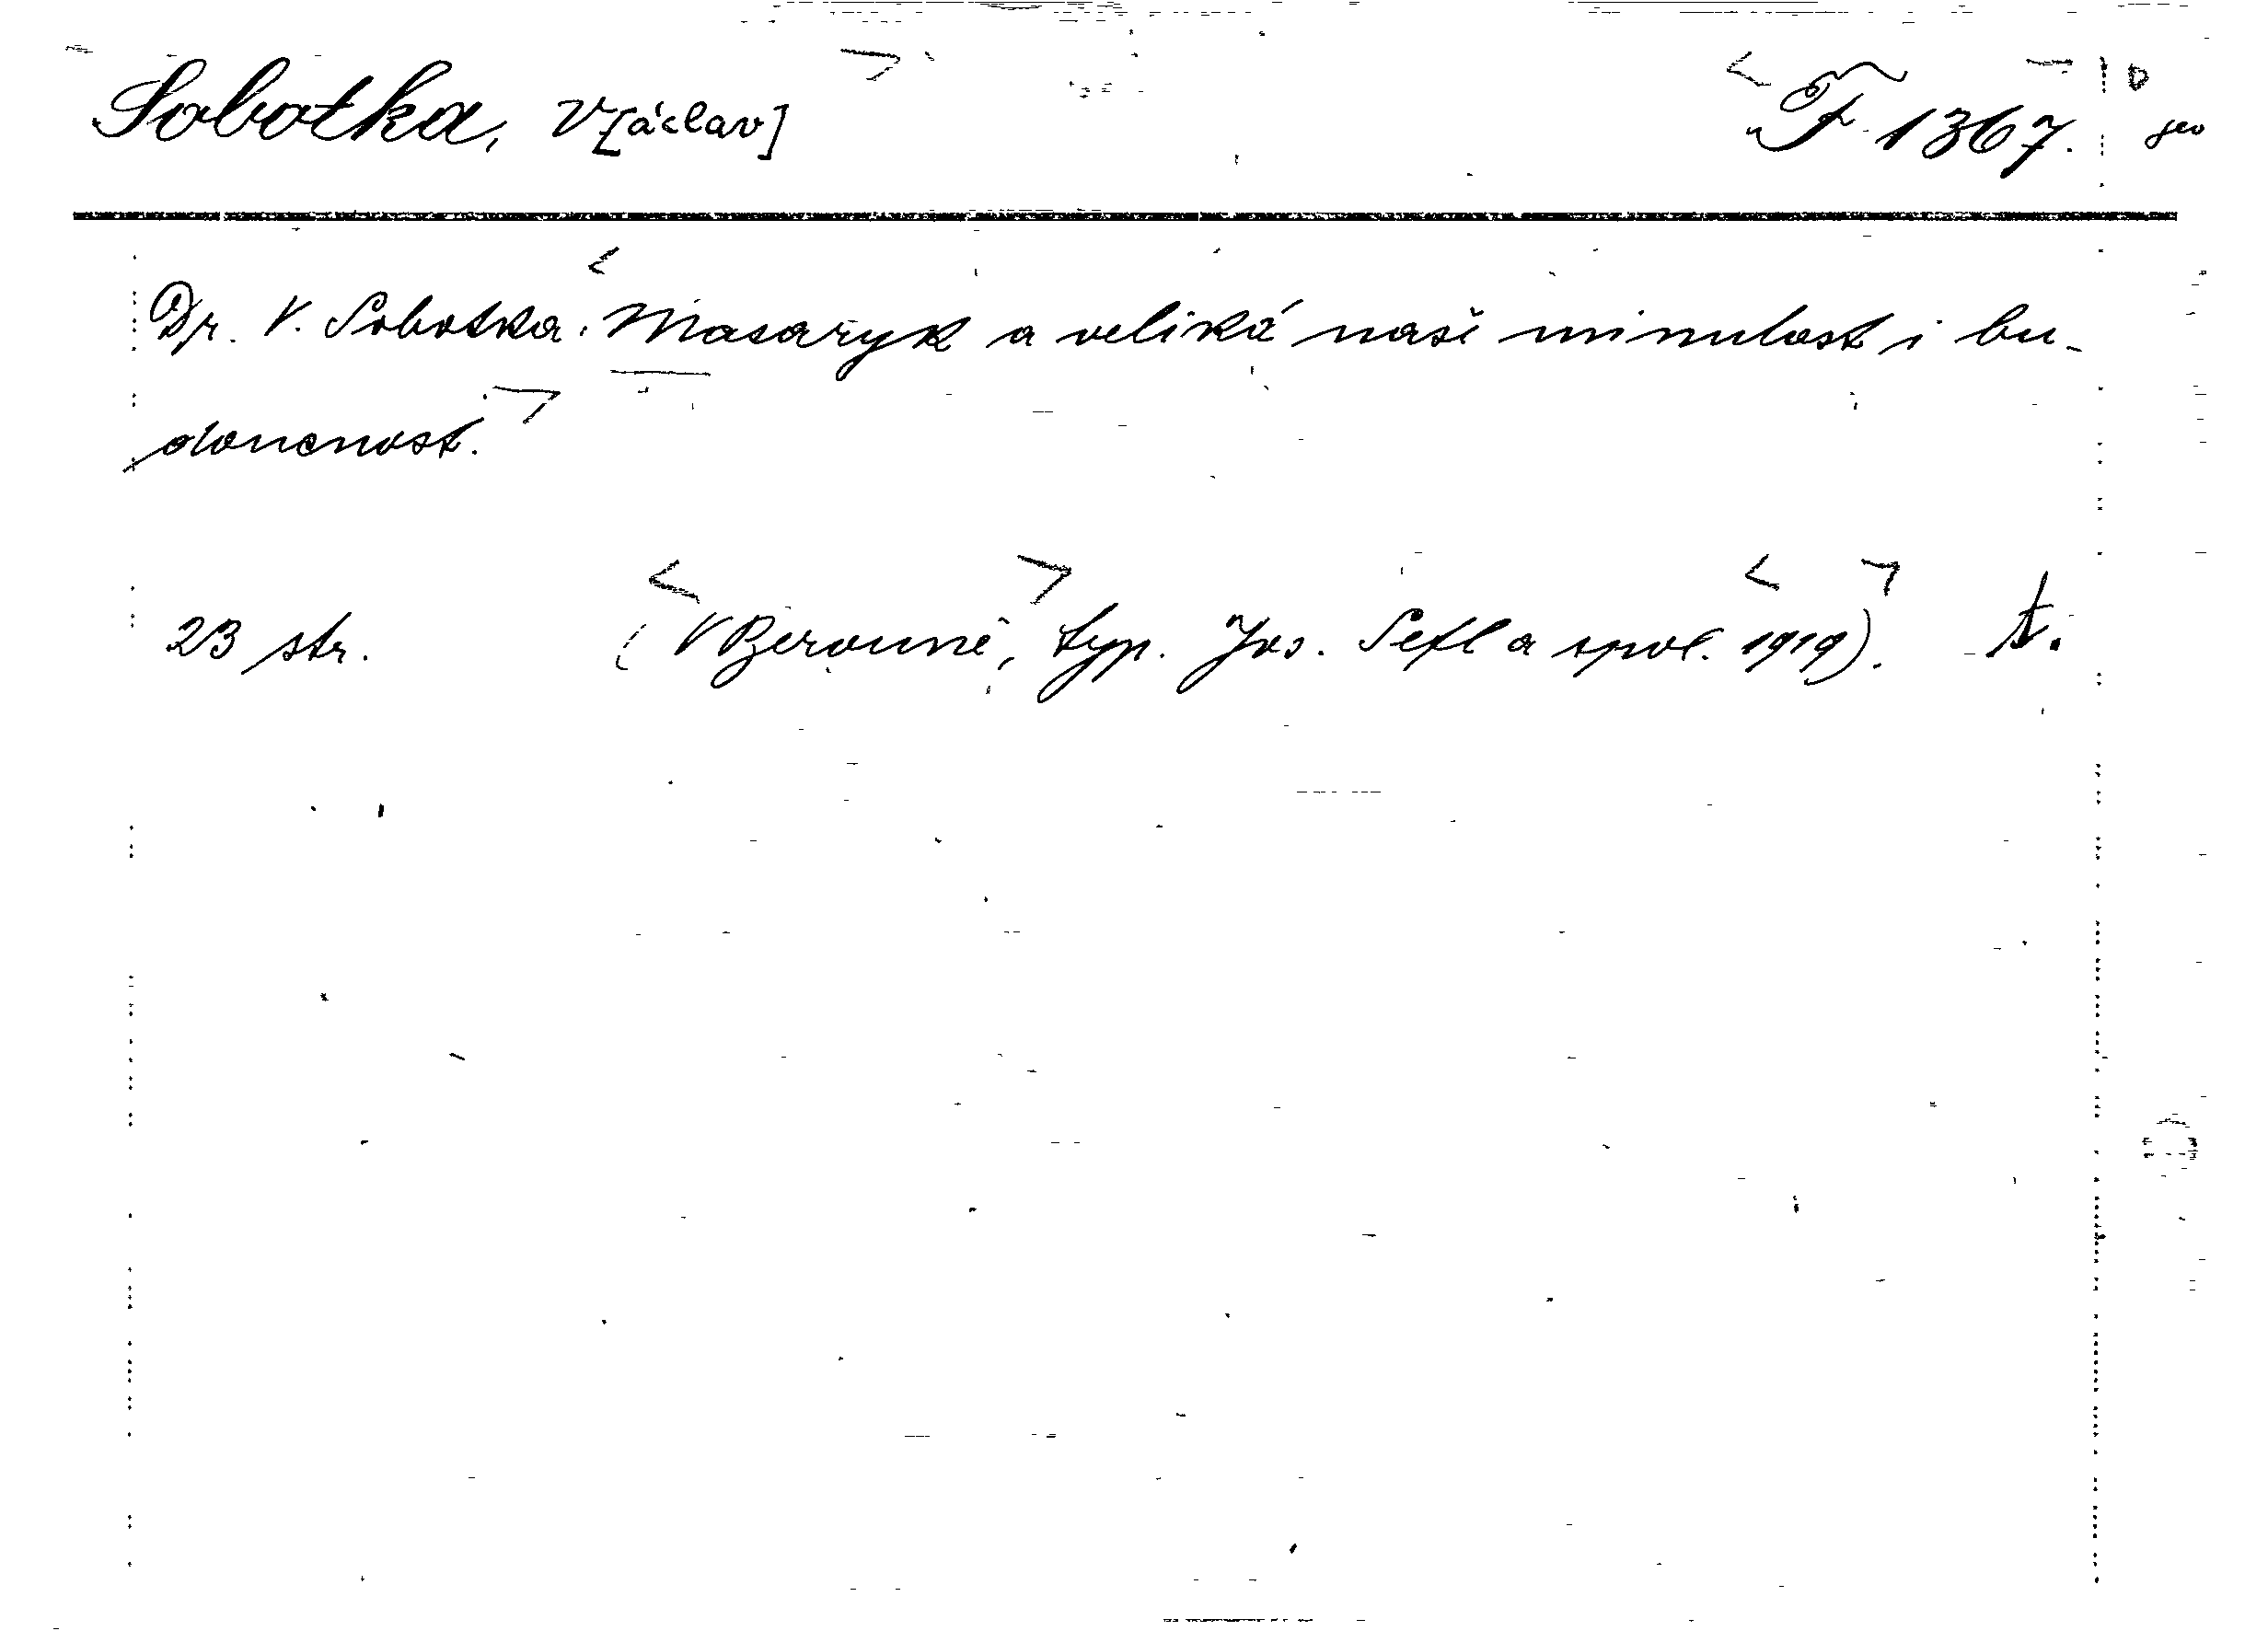 Sobotka, V[áclav] F 1367. D
Dr. V. Sobotka: Masaryk a veliká naše minulost i bu-
doucnost.
23 str. (V Berouně, typ. Jos. Šefl a spol. 1919). t.